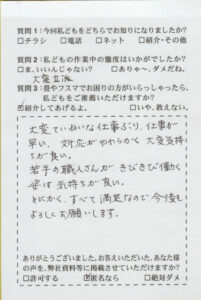 質問1:今回私どもをどちらでお知りになりましたか?
□チラシ　□電話　□ネット　□紹介・その他
質問2:私どもの作業中の態度はいかがでしたか?
□ま、いいんじゃない?　□ありゃ～、ダメだね。
大変立派
質問3:畳やフスマでお困りの方がいらっしゃったら、
私どもをご推薦いただけますか?
☑紹介してあげるよ。　□いや、教えない。
大変ていねいな仕事ぶり、仕事が
早い、対応がやわらかく大変気持
ちが良い。
若手の職人さんが、きびきび働く
姿は気持ちが良い。
とにかく、すべて満足なので今後も
よろしくお願いします。
ありがとうございました。お答えいただいた、あなた様
の声を、弊社資料等に掲載させていただけますか?
□許可する　☑匿名なら　□絶対ダメ